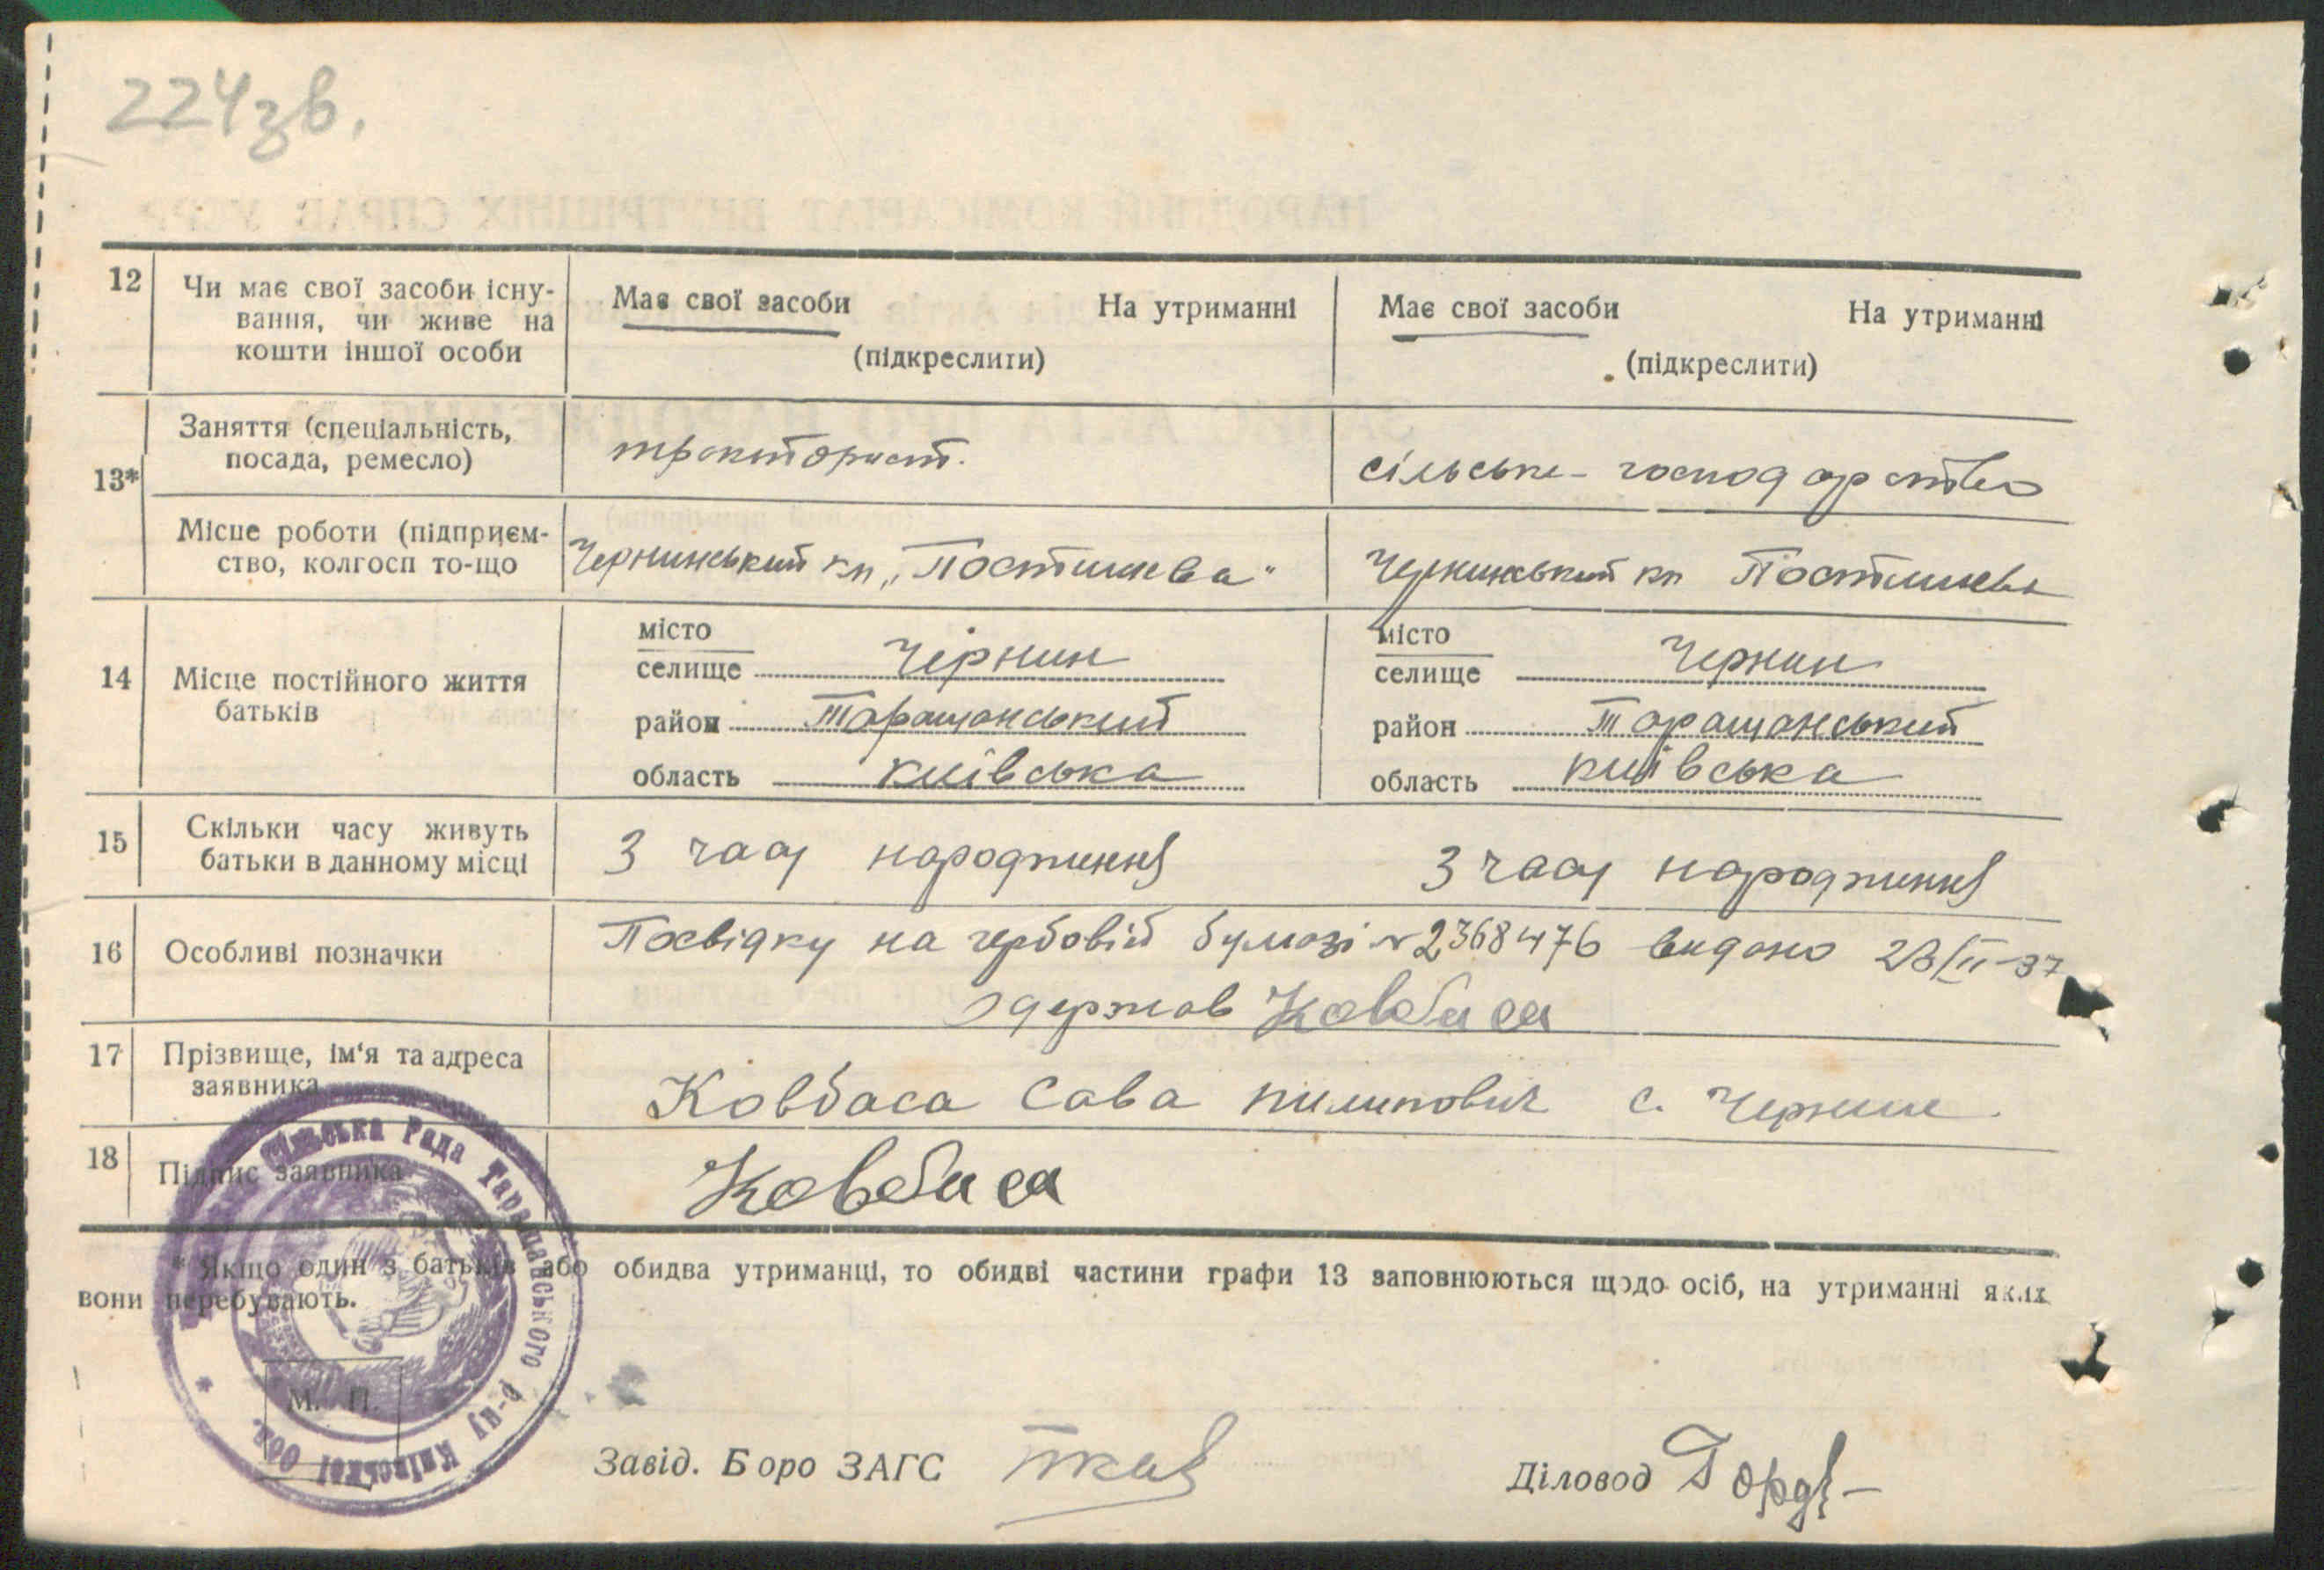 224зв.
12 Чи має свої засоби існу-
вання, чи живе на
кошти іншої особи
Має свої засоби На утриманні
(підкреслити)
Має свої засоби На утриманні
(підкреслити)
13*
Заняття (спеціальність,
посада, ремесло)
тракторист.
сільське-господарство
Місце роботи (підприєм-
ство, колгосп то-що
Чернинський кп „Постишева"
Чернинський кп Постишева
14 Місце постійного життя
батьків
місто
селище Чернин
район Таращанський
область київська
місто
селище Чернин
район Таращанський
область київська
15 Скільки часу живуть
батьки в данному місці
З часу народження
З часу народження
16 Особливі позначки
Посвідку на гербовій бумазі № 2368476 видано 28/II-37
одержав Ковбаса
17 Прізвище, ім'я та адреса
заявника
Ковбаса Сава Пилипович с. Чернин
18 Підпис заявника
Ковбаса
* Якщо один з батьків або обидва утриманці, то обидві частини графи 13 заповнюються щодо осіб, на утриманні яких
вони перебувають.
Сільська Рада Таращанського р-ну Київської Обл.
М. П.
Завід. Боро ЗАГС
Діловод